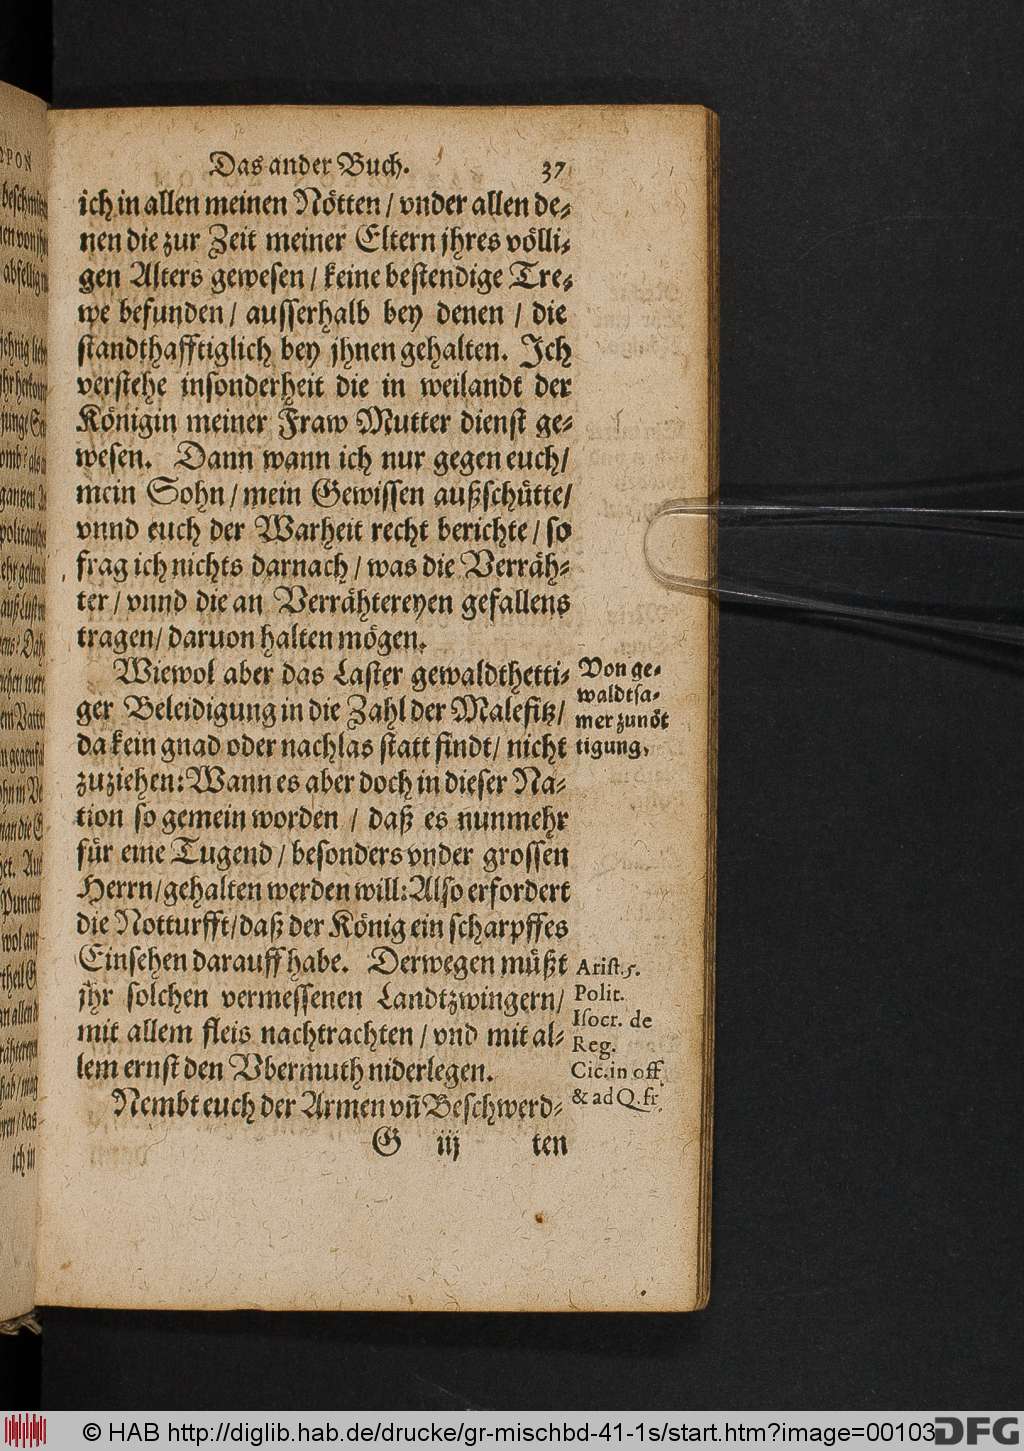 Das ander Buch. 37
ich in allen meinen Nötten / vnder allen de-
nen die zur Zeit meiner Eltern jhres völli-
gen Alters gewesen / keine bestendige Tre-
we befunden / ausserhalb bey denen / die
standthafftiglich bey jhnen gehalten. Ich
verstehe insonderheit die in weilandt der
Königin meiner Fraw Mutter dienst ge-
wesen. Dann wann ich nur gegen euch /
mein Sohn / mein Gewissen außschütte /
vnnd euch der Warheit recht berichte / so
frag ich nichts darnach / was die Verräh-
ter / vnnd die an Verrähtereyen gefallens
tragen / daruon halten mögen.
Wiewol aber das Laster gewaldthetti-
ger Beleidigung in die Zahl der Malefitz /
da kein gnad oder nachlas statt findt / nicht
zuziehen: Wann es aber doch in dieser Na-
tion so gemein worden / daß es nunmehr
für eine Tugend / besonders vnder grossen
Herrn / gehalten werden will: Also erfordert
die Notturfft / daß der König ein scharpffes
Einsehen darauff habe. Derwegen müßt
jhr solchen vermessenen Landtzwingern /
mit allem fleis nachtrachten / vnd mit al-
lem ernst den Vbermuth niderlegen.
Nembt euch der Armen vñ Beschwerd-
G iij ten
Von ge-
waldtsa-
mer zunöt
tigung.
Arist. 5.
Polit.
Isocr. de
Reg.
Cic. in off.
& ad Q. fr.
© HAB http://diglib.hab.de/drucke/gr-mischbd-41-1s/start.htm?image=00103
DFG